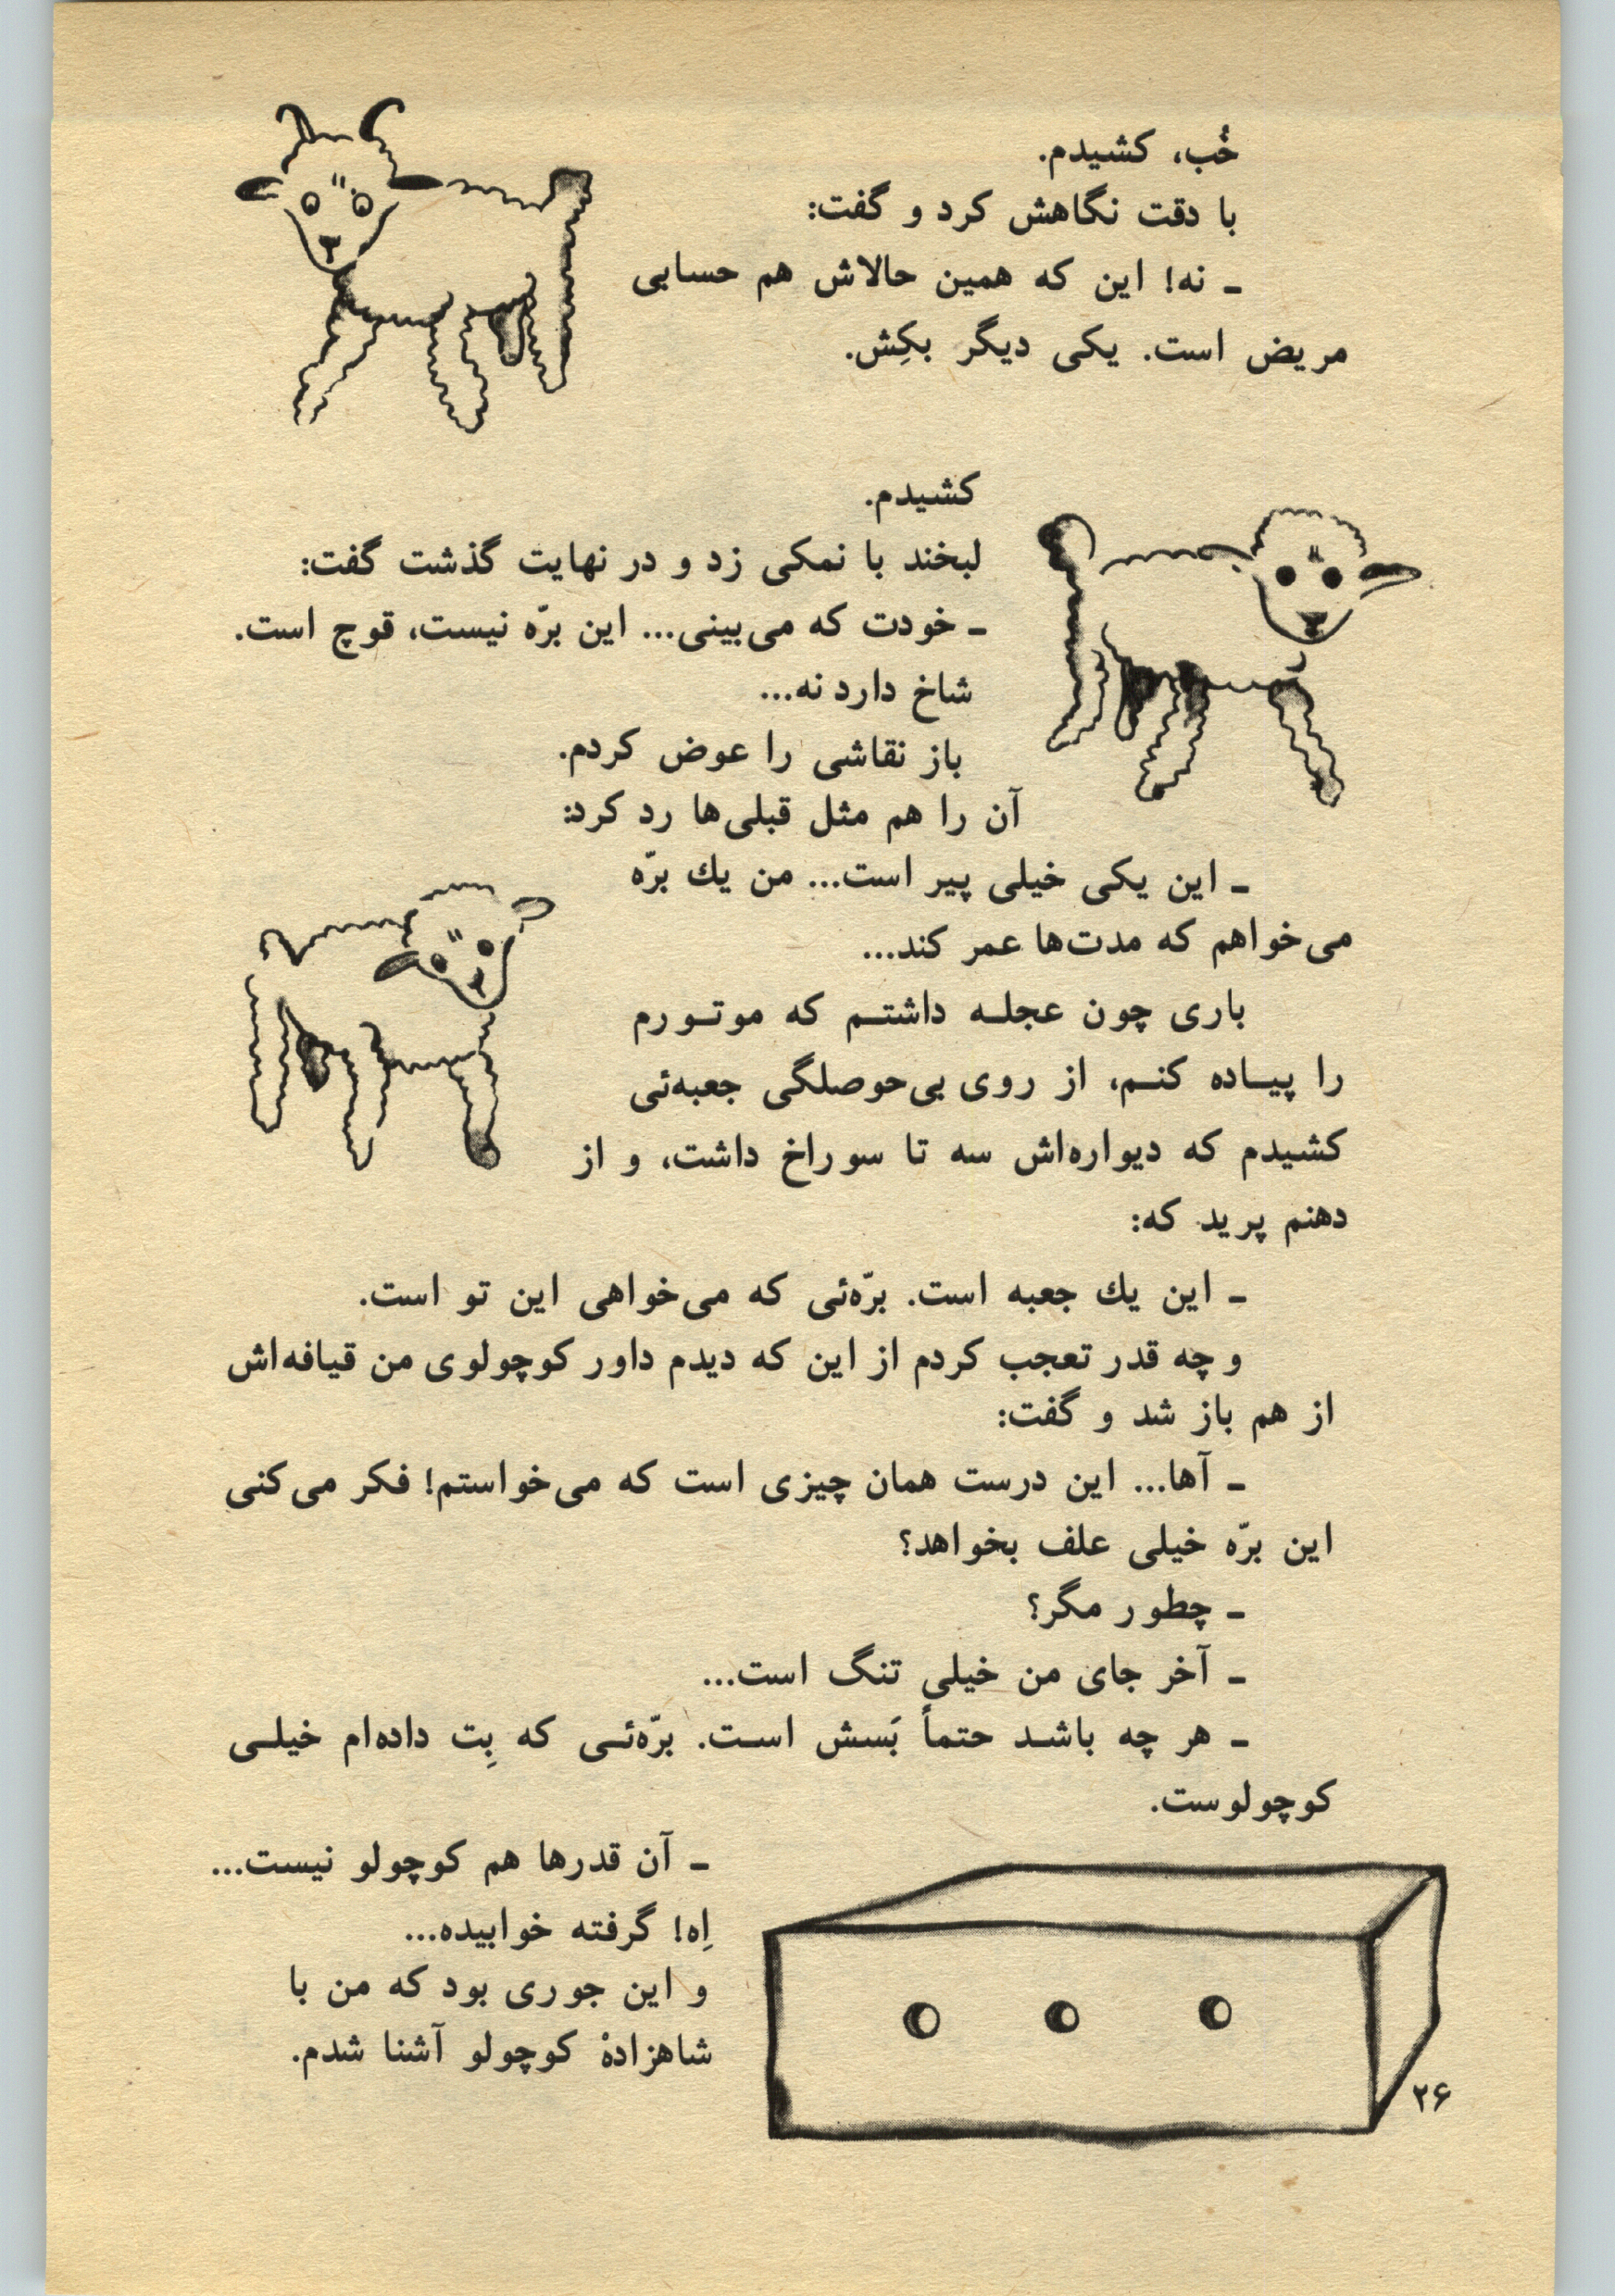 خُب، کشیدم.
با دقت نگاهش کرد و گفت:
ـ نه! این که همین حالاش هم حسابی
مریض است. یکی دیگر بکِش.
کشیدم.
لبخند با نمکی زد و در نهایت گذشت گفت:
ـ خودت که می‌بینی... این برّه نیست، قوچ است.
شاخ دارد نه...
باز نقاشی را عوض کردم.
آن را هم مثل قبلی‌ها رد کرد:
ـ این یکی خیلی پیر است... من یك برّه
می‌خواهم که مدت‌ها عمر کند...
باری چون عجلـه داشتـم که موتـورم
را پیـاده کنـم، از روی بی‌حوصلگی جعبه‌ئی
کشیدم که دیواره‌اش سه تا سوراخ داشت، و از
دهنم پرید که:
ـ این یك جعبه است. برّه‌ئی که می‌خواهی این تو است.
و چه قدر تعجب کردم از این که دیدم داور کوچولوی من قیافه‌اش
از هم باز شد و گفت:
ـ آها... این درست همان چیزی است که می‌خواستم! فکر می‌کنی
این برّه خیلی علف بخواهد؟
ـ چطور مگر؟
ـ آخر جای من خیلی تنگ است...
ـ هر چه باشـد حتماً بَسش اسـت. برّه‌ئـی که بِت داده‌ام خیلـی
کوچولوست.
ـ آن قدرها هم کوچولو نیست...
اِه! گرفته خوابیده...
و این جوری بود که من با
شاهزادهْ کوچولو آشنا شدم.
۲۶